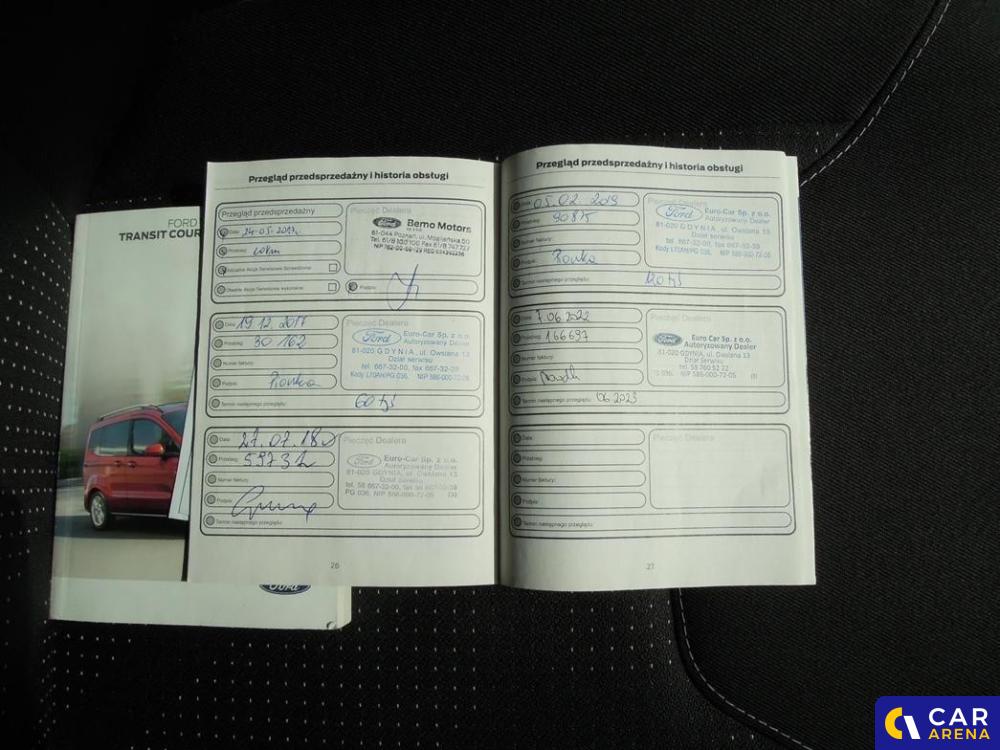 FORD
TRANSIT COUR
Przegląd przedsprzedażny i historia obsługi
Przegląd przedsprzedażny
Data:
24-05-2017r.
Przebieg:
Aktualne Akcje Serwisowe Sprawdzone:
Otwarte Akcje Serwisowe wykonane:
Pieczęć Dealera
Ford
Bemo Motors
61-044 Poznań, ul. Mogileńska 50
Podpis:
Data: 19.12.2017
Przebieg: 30 162
Numer faktury:
Podpis:
Termin następnego przeglądu: 60 tyś
Pieczęć Dealera
Ford
Euro-Car Sp. z o.o.
Autoryzowany Dealer
81-020 GDYNIA, ul. Owsiana 13
Dział serwisu
tel. 667-32-00, fax 667-32-39
Kody LTGAN/PG 036, NIP 586-000-72-05
Data: 27.07.18
Przebieg: 59732
Numer faktury:
Podpis:
Termin następnego przeglądu:
Pieczęć Dealera
Ford
Euro-Car Sp. z o.o.
Autoryzowany Dealer
81-020 GDYNIA, ul. Owsiana 13
Dział serwisu
tel. 58 667-32-00, fax 58 667-32-39
PG 036, NIP 586-000-72-05 (3)
26
Przegląd przedsprzedażny i historia obsługi
Data: 05.02.2019
Przebieg:
Numer faktury:
Podpis:
Termin następnego przeglądu: 120 tyś
Pieczęć Dealera
Ford
Euro-Car Sp. z o.o.
Autoryzowany Dealer
81-020 GDYNIA, ul. Owsiana 13
Dział serwisu
tel. 667-32-00, fax 667-32-39
Kody LTGAN/PG 036, NIP 586-000-72-05
Data: 7.06.2022
Przebieg: 166697
Numer faktury:
Podpis:
Termin następnego przeglądu: 06.2023
Pieczęć Dealera
Ford
Euro Car Sp. z o.o.
Autoryzowany Dealer
81-020 GDYNIA, ul. Owsiana 13
Dział Serwisu
tel. 58 760 52 22
PG 036, NIP 586-000-72-05
Data:
Przebieg:
Numer faktury:
Podpis:
Termin następnego przeglądu:
Pieczęć Dealera
27
Ford
CAR
ARENA